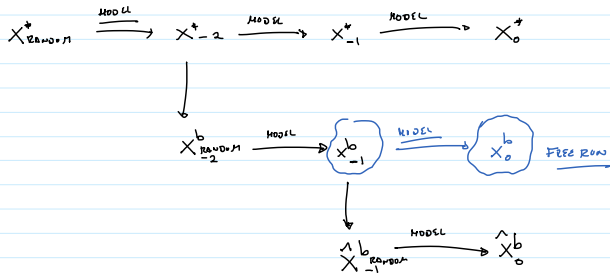 X*RANDOM MODEL X*-2 MODEL X*-1 MODEL X*0
X^b RANDOM -2 MODEL x^b-1 MODEL x^b0 FREE RUN
X̂^b RANDOM -1 MODEL X̂^b0